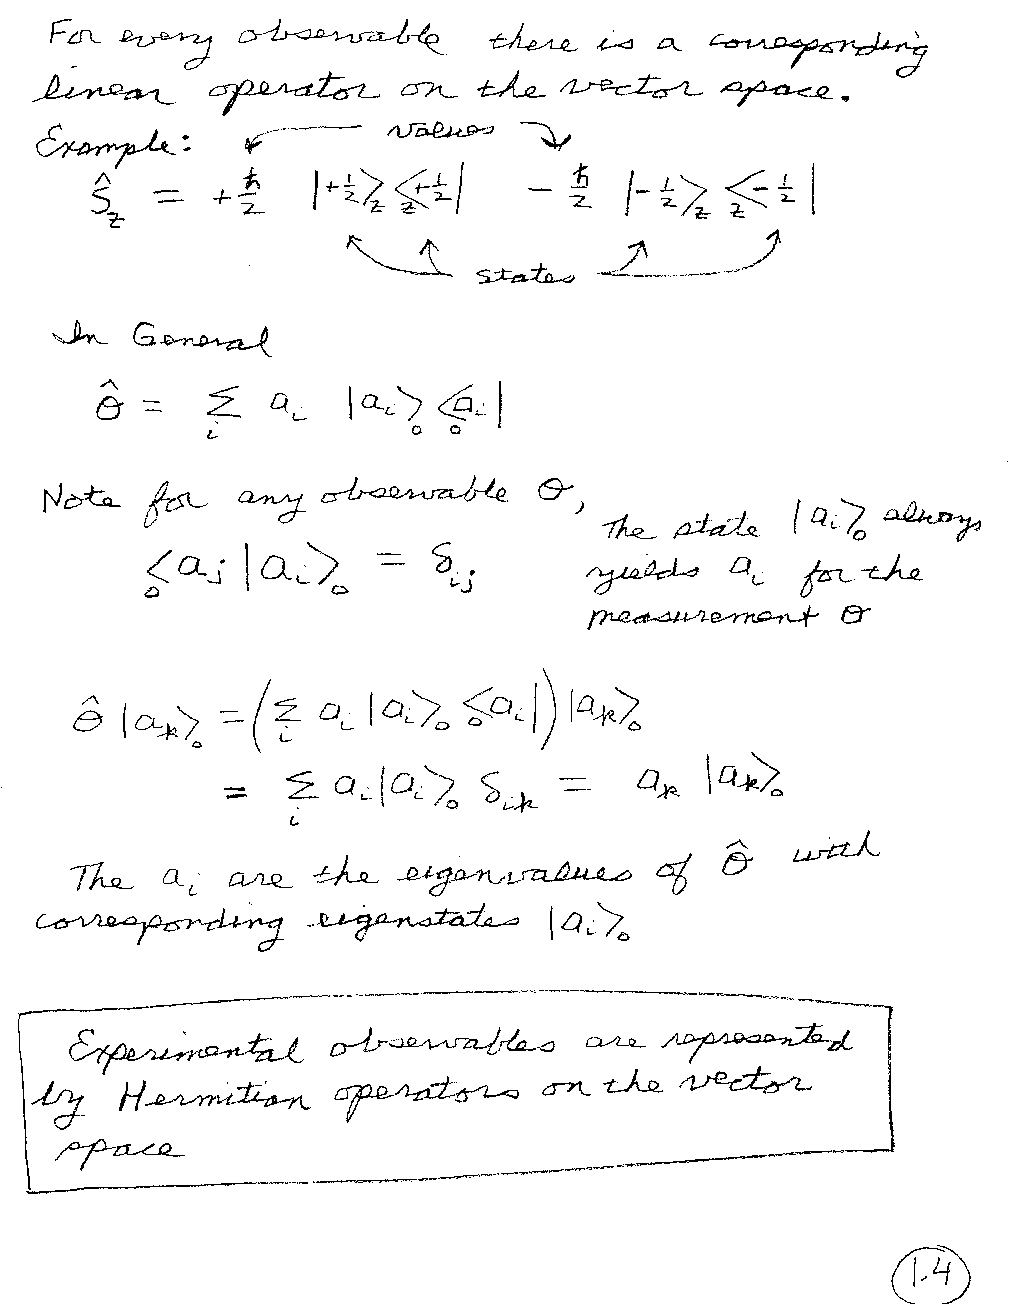 For every observable there is a corresponding
linear operator on the vector space.
Example: values
Ŝ_z = +ħ/2 |+½⟩_z _z⟨+½| − ħ/2 |−½⟩_z _z⟨−½|
states
In General
Ô = Σ_i a_i |a_i⟩_o _o⟨a_i|
Note for any observable O,
_o⟨a_j|a_i⟩_o = δ_ij
The state |a_i⟩_o always
yields a_i for the
measurement O
Ô |a_k⟩_o = (Σ_i a_i |a_i⟩_o _o⟨a_i|) |a_k⟩_o
= Σ_i a_i |a_i⟩_o δ_ik = a_k |a_k⟩_o
The a_i are the eigenvalues of Ô with
corresponding eigenstates |a_i⟩_o
Experimental observables are represented
by Hermitian operators on the vector
space
1.4